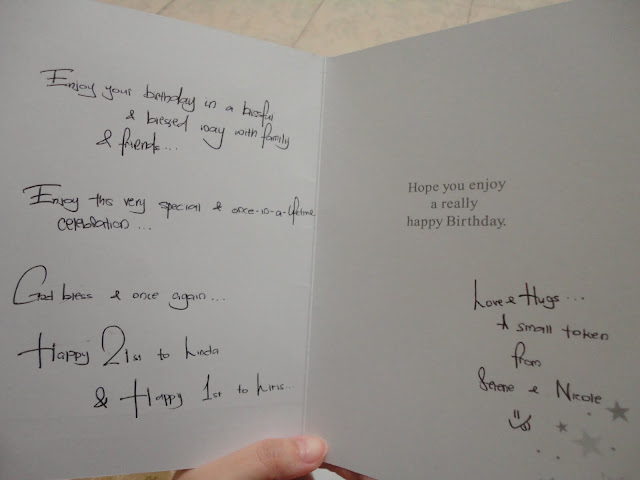 Enjoy your birthday in a blissful
& blessed way with family
& friends...
Enjoy this very special & once-in-a-lifetime
celebration...
God bless & once again...
Happy 21st to Linda
& Happy 1st to
Hope you enjoy
a really
happy Birthday.
Love & Hugs...
A small token
from
Serene & Nicole